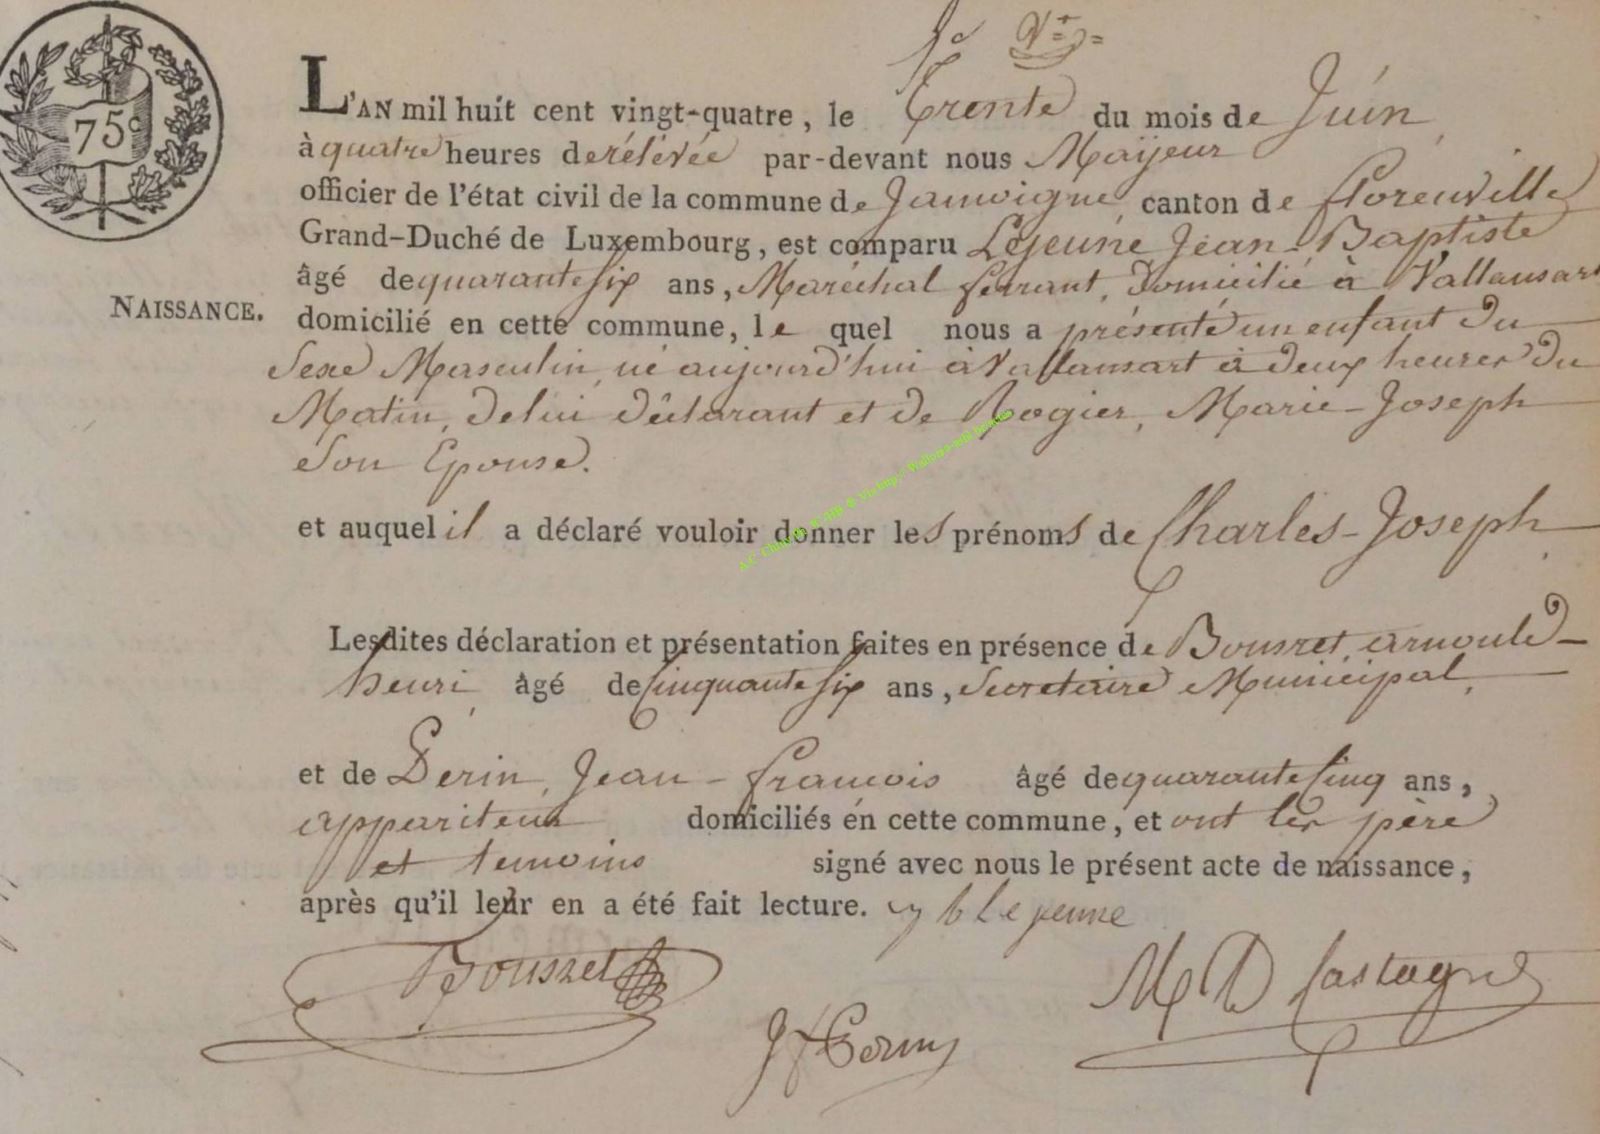 75c
L'AN mil huit cent vingt-quatre, le Trente du mois de Juin,
à quatre heures de rélévée par-devant nous Maijeur
officier de l'état civil de la commune de Jamoigne, canton de florenville
Grand-Duché de Luxembourg, est comparu Lejeune Jean-Baptiste
âgé de quarante six ans, Maréchal ferrant, Domicilié à Vallansart
NAISSANCE.
domicilié en cette commune, le quel nous a présenté un enfant du
Sexe Masculin, né aujourd'hui à Vallansart à deux heures du
Matin, de lui déclarant et de Rogier, Marie-Joseph
Son Epouse.
et auquel il a déclaré vouloir donner les prénoms de Charles-Joseph.
Lesdites déclaration et présentation faites en présence de Bousret, arnould-
henri, âgé de Cinquante Six ans, Secretaire Municipal,
et de Perin, Jean-francois âgé de quarante Cinq ans,
appariteur domiciliés en cette commune, et ont les père
et temoins signé avec nous le présent acte de naissance,
après qu'il leur en a été fait lecture. Lejeune
Bousret
M D Castagne
J f Perin